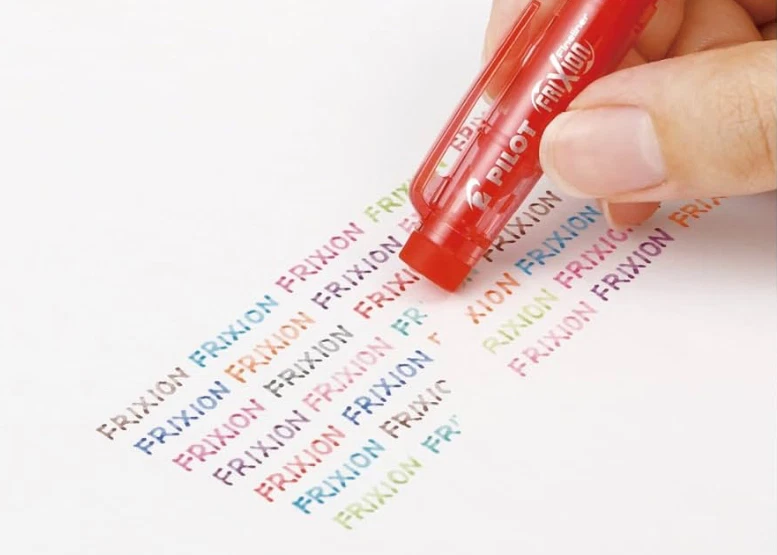 PILOT
FRIXION
FRIXION FRIXION FRIXION FRI
FRIXION FRIXION FRIXION
FRIXION FRIXION FRIXION
FRIXION FRIXION FR FRIXION
FRIXION FRIXION F XION FRIXION
FRIXION FRIXIO RIXION FRIXION
FRIXION FRI FRIXION FRIXION FRI